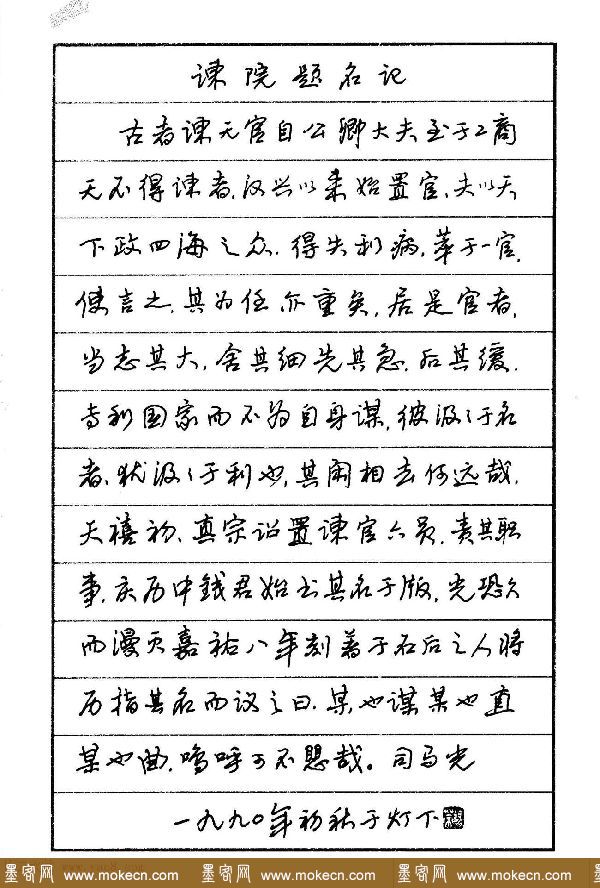 谏院题名记
古者谏无官自公卿大夫至于工商
无不得谏者,汉兴以来始置官,夫以天
下政四海之众,得失利病,萃于一官,
使言之,其为任亦重矣,居是官者,
当志其大,舍其细先其急,后其缓,
专利国家而不为自身谋,彼汲汲于名
者,犹汲汲于利也,其间相去何远哉,
天禧初,真宗诏置谏官六员,责其职
事,庆历中钱君始书其名于版,光恐久
而漫灭嘉祐八年刻著于石后之人将
历指其名而议之曰,某也谋某也直
某也曲,呜呼可不惧哉。司马光
一九九〇年初秋于灯下
墨客网 www.mokecn.com 墨客网 www.mokecn.com 墨客网 www.mokecn.com